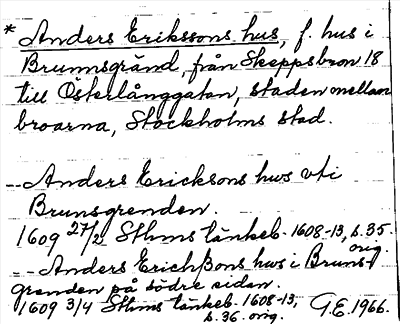 * Anders Erikssons hus, f. hus i
Brunnsgränd, från Skeppsbron 18
till Österlånggatan, staden mellan
broarna, Stockholms stad.
-- Anders Ericksons hws vti
Brunsgrenden.
1609 27/2 Sthms tänkeb. 1608-13, s. 35. orig.
-- Anders Erichßons hws i Bruns-
grenden på södre sidan.
1609 3/4 Sthms tänkeb. 1608-13,
s. 36. orig. G.E. 1966.